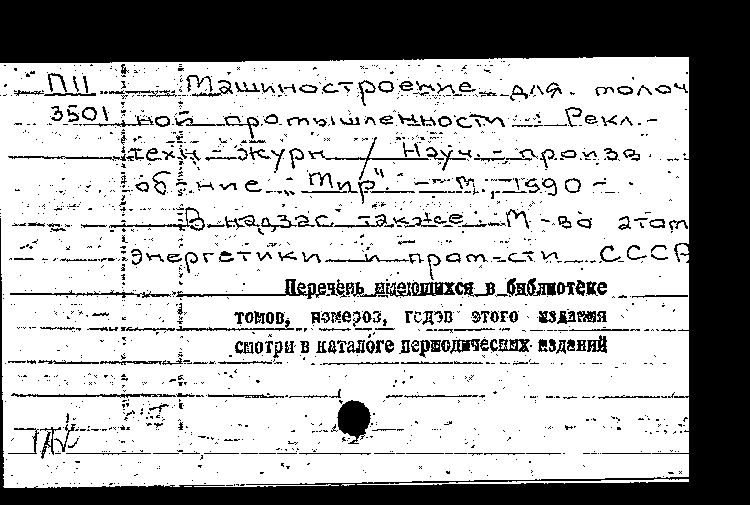 П11 Машиностроение для молоч
3501 ной промышленности : Рекл.-
техн. журн / Науч.-произв
об-ние „Мир". — М., 1990 -
В надзаг также: М-во атом
энергетики и пром-сти СССР
Перечень имеющихся в библиотеке
томов, номеров, годов этого издания
смотри в каталоге периодических изданий